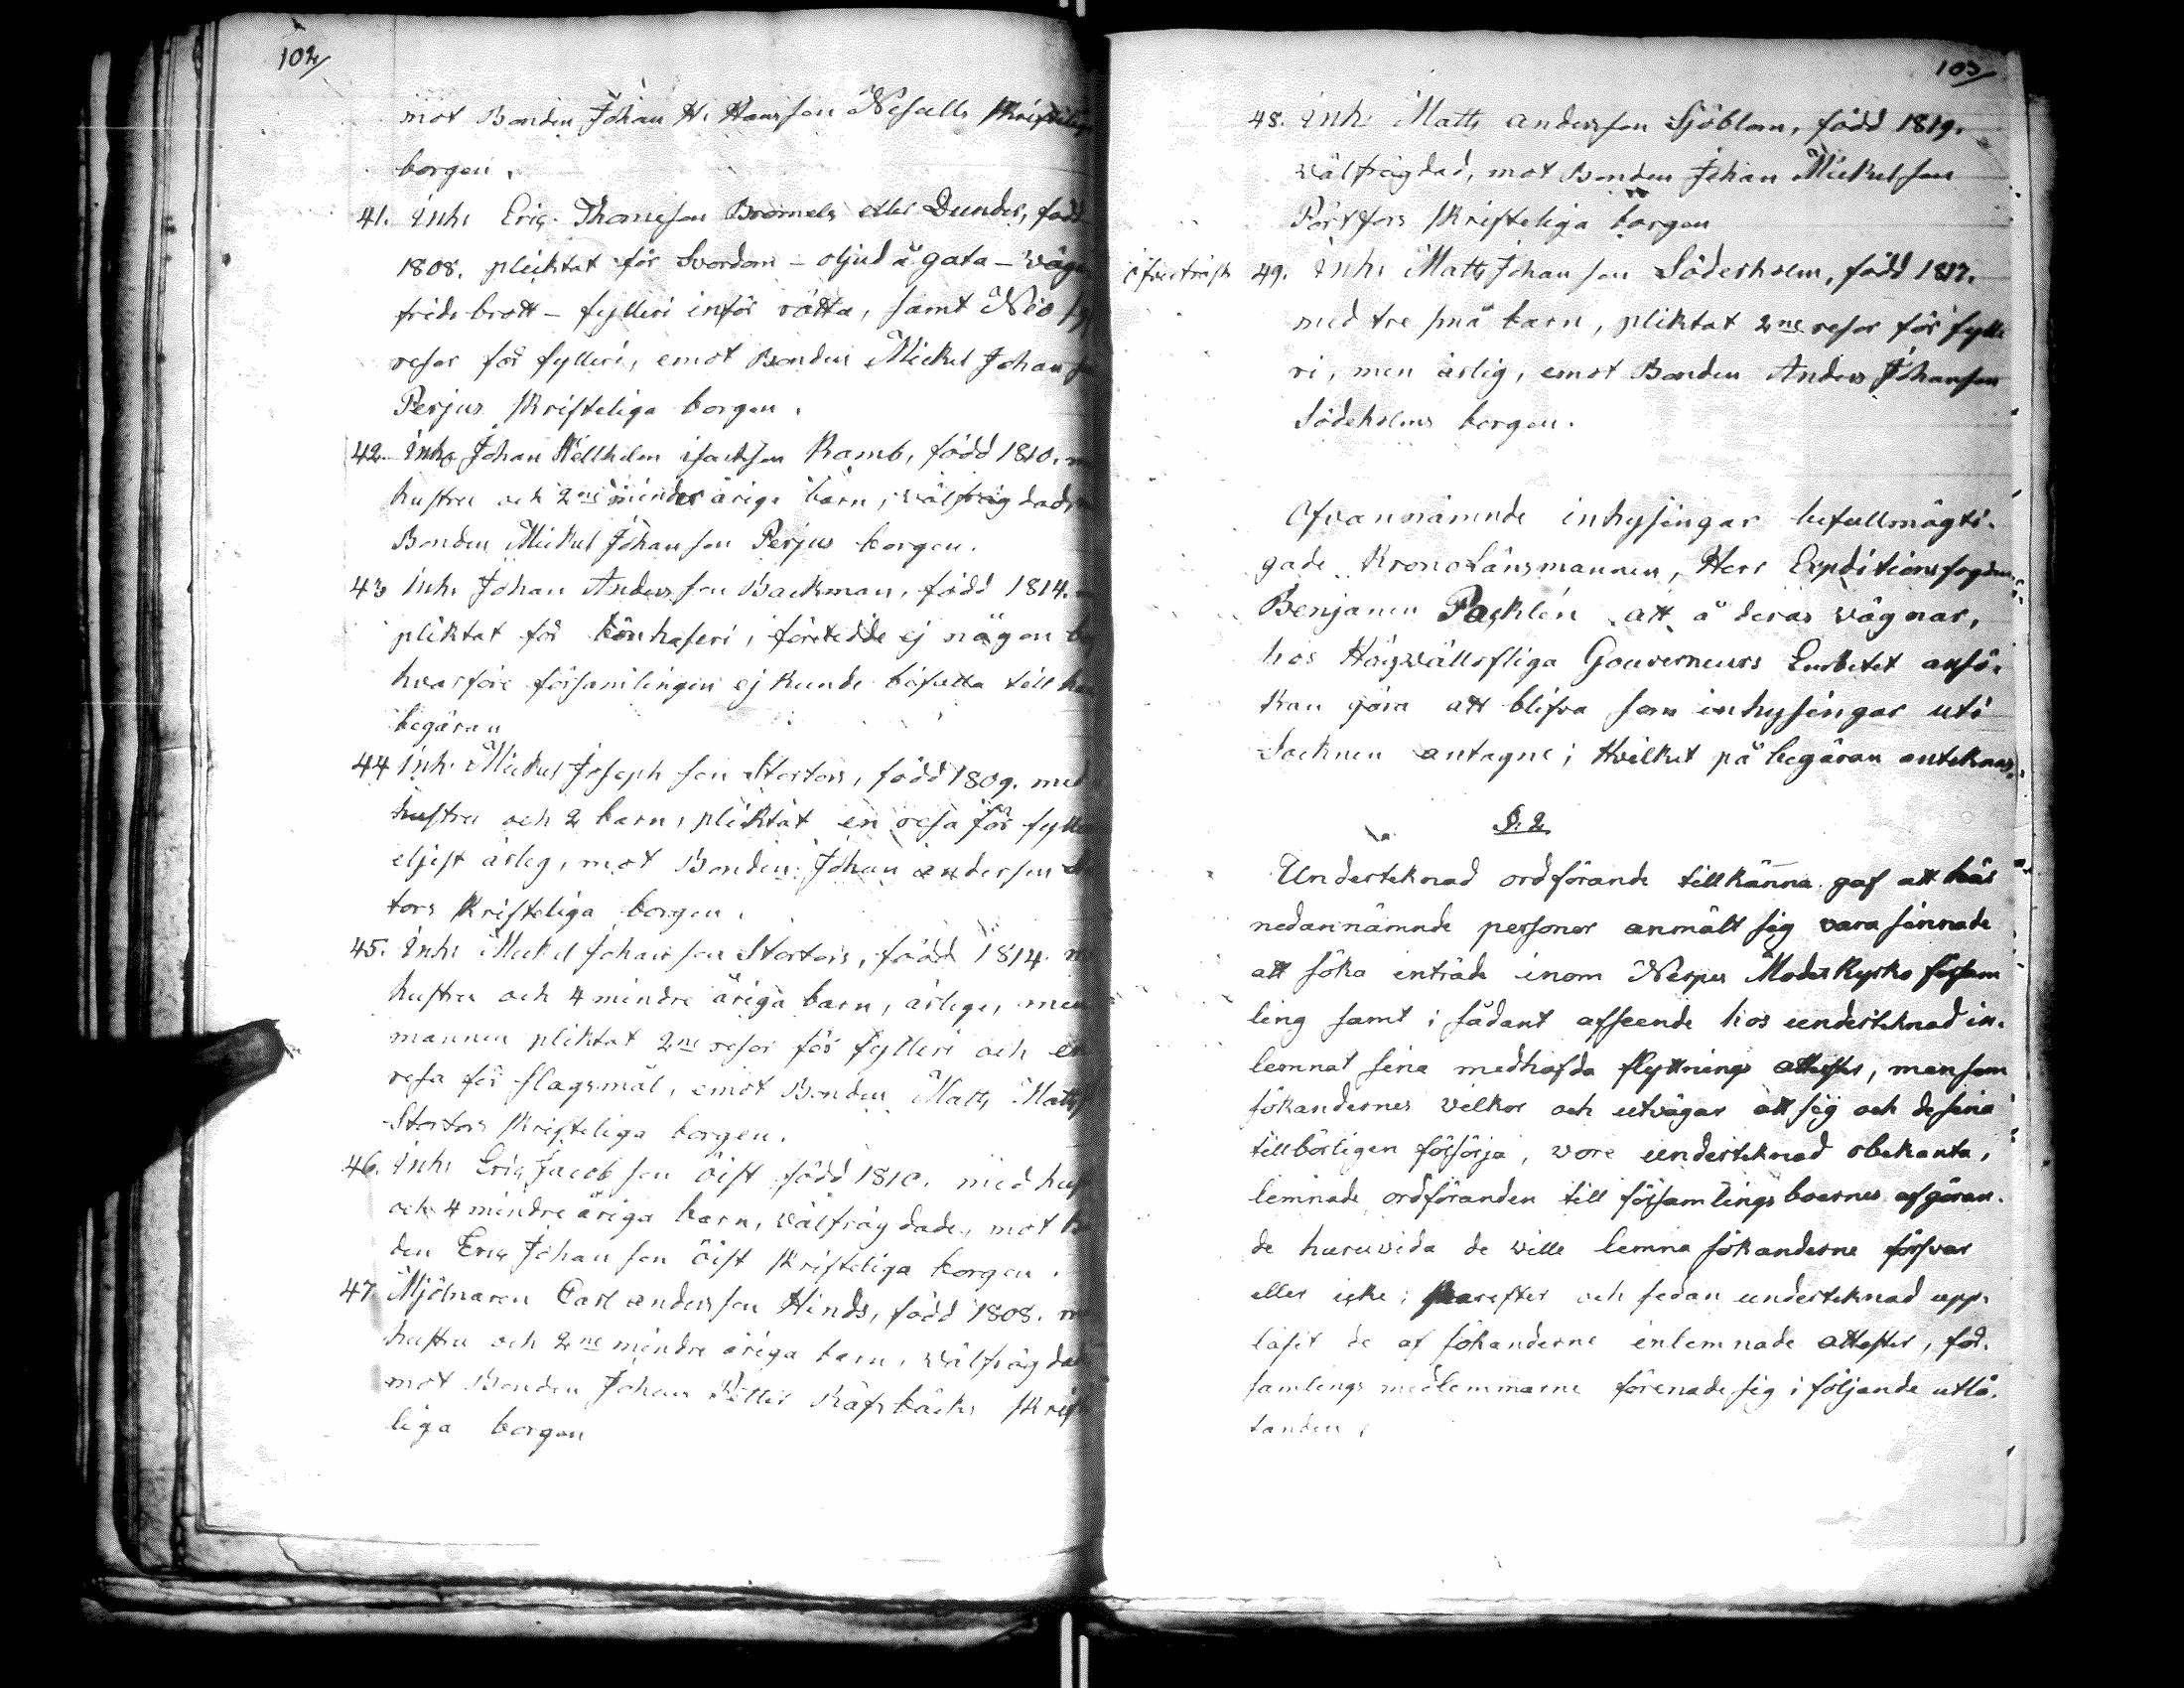 102/
mot Bonden Johan H. Hansson Nefalls skrifteliga
borgen.
41. Inh. Eric Thomesson Bromels eller Dunder, född
1808. plicktat för Svordom – oljud å gata – väga
fridsbrott – fylleri inför rätta, samt Nio
resor för fylleri, emot Bonden Mickel Johansson
Perjus skrifteliga borgen.
42. Inh. Johan Wellhelm Isacksson Ramb, född 1810. m
hustru och 2ne minderåriga barn, välfrägdad,
Bonden Mickel Johansson Perjus borgen.
43 Inh. Johan Andersson Backman, född 1814.
pliktat för Lönskaferi, företedde ej någon
hvarföre församlingen ej kunde bifalla till
begäran
44 Inh. Mickel Josephsson Stortors, född 1809. med
hustru och 2 barn, pliktat en resa för fylle
eljest ärlig, mot Bonden Johan Andersson
tors skrifteliga borgen.
45. Inh. Mickel Johansson Stortors, född 1814. m
hustru och 4 mindre åriga barn, ärlige, men
mannen pliktat 2ne resor för fylleri och en
resa för slagsmål, emot Bonden Matts Matts
Stortors skrifteliga borgen.
46. Inh. Eric Jacobsson Öist född 1810. med hus
och 4 mindre åriga barn, välfrägdade, mot
den Eric Johansson Öist skrifteliga borgen.
47 Mjölnaren Carl Andersson Hinds, född 1808. m
hustru och 2ne mindre åriga barn, välfrägdad
mot Bonden Johan Petter Räfsbäcks skrift
liga borgen
103/
48. Inh. Matts Andersson Sjöblom, född 1819.
välfrägdad, mot Bonden Johan Mickelsson
Pörtfors skrifteliga borgen
Öfverträsk 49. Inh. Matts Johansson Söderholm, född 1817.
med tre små barn, pliktat 2ne resor för fylle
ri, men ärlig, emot Bonden Anders Johansson
Södeholms borgen.
Ofvannämnde inhysingar befullmägti-
gade KronoLänsmannen, Herr Expeditionsfogden
Benjamin Packlén att å deras vägnar,
hos Högvällofliga Gouverneurs Embetet ansö-
kan göra att blifva som inhysingar uti
Socknen antagne; Hvilket på begäran anteknas.
§. 2
Underteknad ordförande tillkänna gaf att här
nedannämnde personer anmält sig vara sinnade
att söka inträde inom Nerpes Moderkyrko försam
ling samt i sådant afseende hos underteknad in-
lemnat sina medhafda flyttnings attester, men som
sökandernes vilkor och utvägar att sig och de sina
tillbörligen försörja, vore underteknad obekanta,
lemnade ordföranden till församlingsboernes afgöran-
de huruvida de ville lemna sökanderne försvar
eller icke; Hvarefter och sedan underteknad upp-
läsit de af sökanderne inlemnade attester, för-
samlings medlemmarne förenade sig i följande utlå-
tanden,